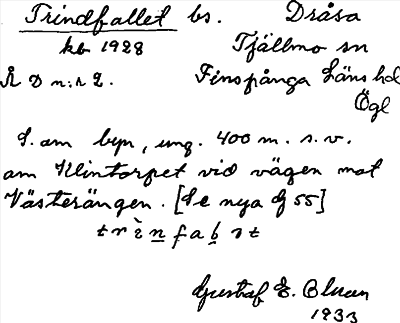 Trindfallet bs. Dråsa
kb 1928 Tjällmo sn
Å D n:r 2. Finspånga Läns hd
Ögl
S. om byn, ung. 400 m. s. v.
om Klintorpet vid vägen mot
Västerängen. [Se nya Gj 55]
Gustaf E. Olsson
1933